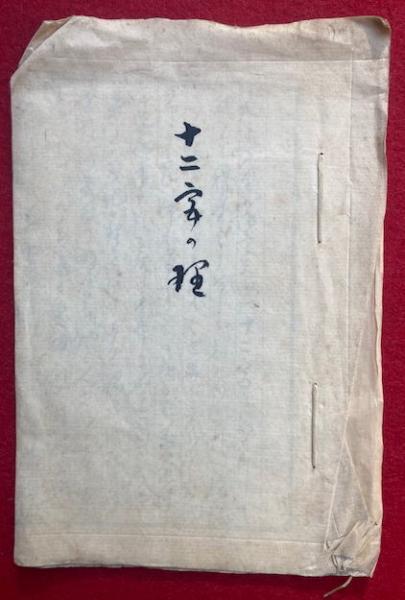 十二字の理